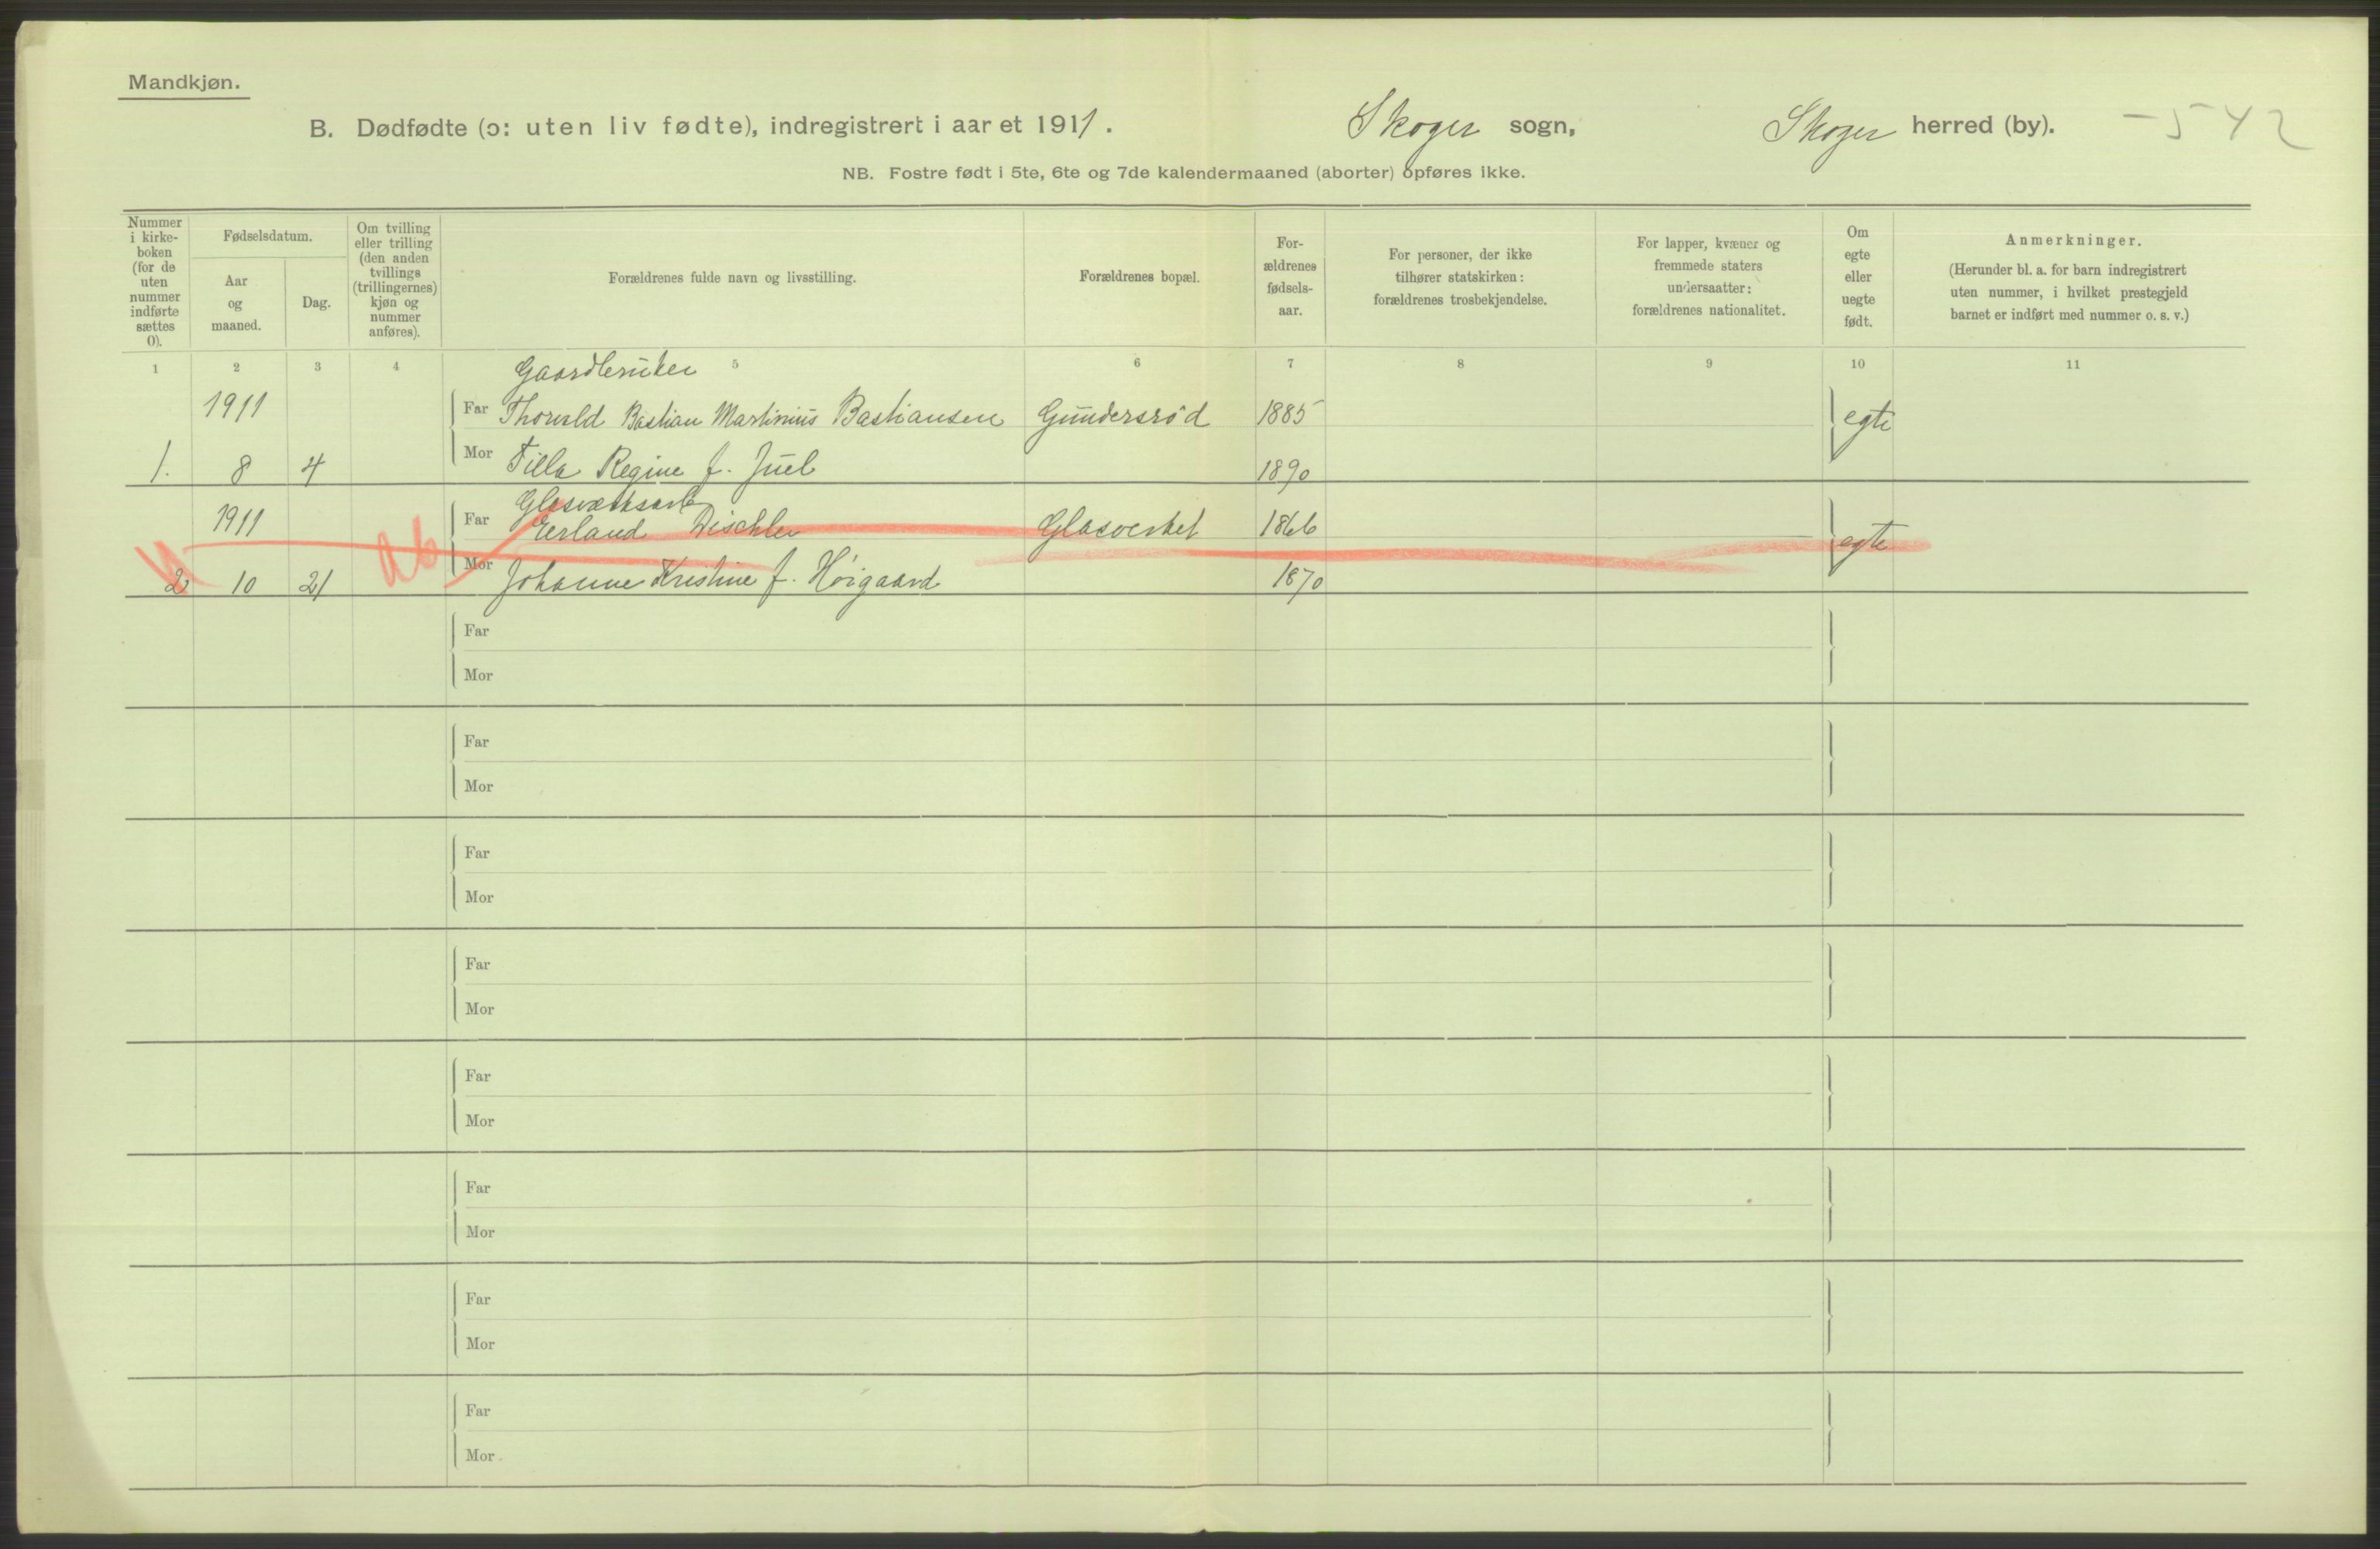 Mandkjøn.
B. Dødfødte (ɔ: uten liv fødte), indregistrert i aaret 1911. Skoger sogn, Skoger herred (by). - 542
NB. Fostre født i 5te, 6te og 7de kalendermaaned (aborter) opføres ikke.
Nummer i kirke-boken (for de uten nummer indførte sættes 0).
Fødselsdatum.
Aar og maaned.
Dag.
Om tvilling eller trilling (den anden tvillings (trillingernes) kjøn og nummer anføres).
Forældrenes fulde navn og livsstilling.
Forældrenes bopæl.
For-ældrenes fødsels-aar.
For personer, der ikke tilhører statskirken: forældrenes trosbekjendelse.
For lapper, kvæner og fremmede staters undersaatter: forældrenes nationalitet.
Om egte eller uegte født.
Anmerkninger.
(Herunder bl. a. for barn indregistrert uten nummer, i hvilket prestegjeld barnet er indført med nummer o. s. v.)
1 2 3 4 5 6 7 8 9 10 11
Gaardbruker
1911 Far Thorvald Bastian Martinius Bastiansen Gundersrød 1885 egte
1. 8 4 Mor Tilla Regine f. Juel 1890
Glasværksarb
1911 Far Erland Dischler Glasverket 1866 egte
ab
2 10 21 Mor Johanne Kristine f. Høigaard 1870
Far
Mor
Far
Mor
Far
Mor
Far
Mor
Far
Mor
Far
Mor
Far
Mor
Far
Mor